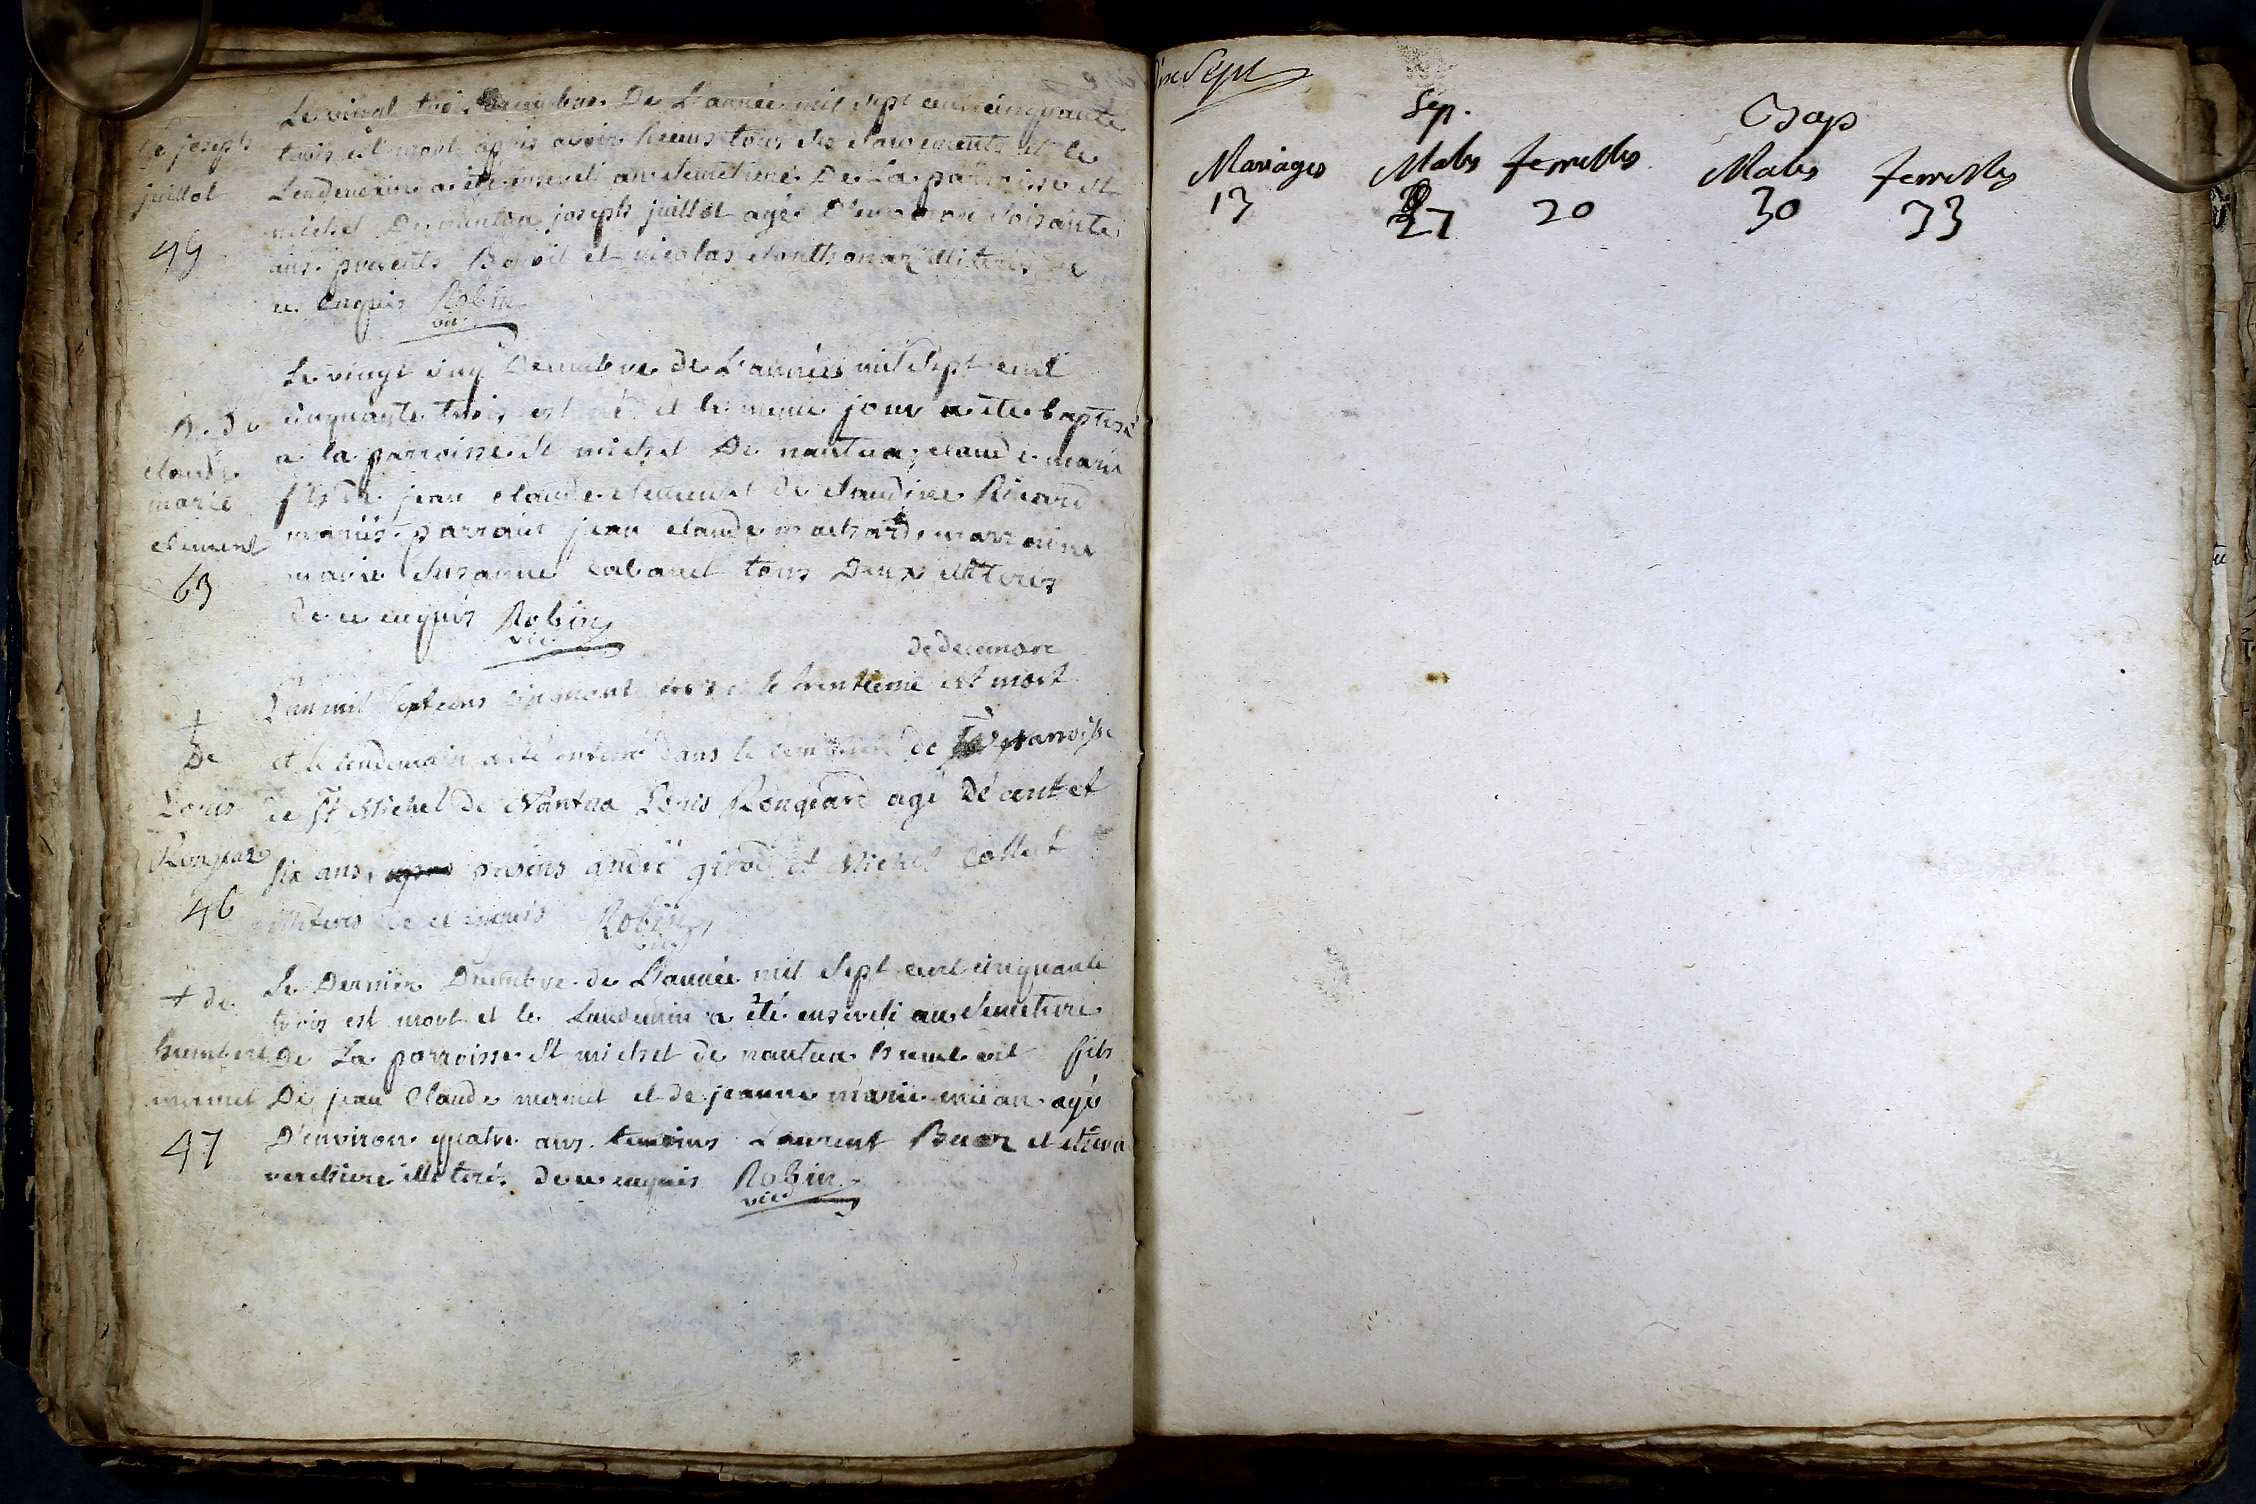 Le vingt trois decembre De L'année mil sept cent cinquante
trois est mort après avoir reçus tous les sacrements et le
Lendemain a été enseveli au semetiere De La parroisse st
michel De nantua joseph juillot agé d'environ soisante
ans presents Benoit et nicolas illiteres de
ce enquis Robin
vic.
de joseph
juillot
45
Le vingt cinq Decembre de L'année mil sept cent
cinquante trois est né et le meme jour a ete baptisé
a la parroisse st michel De nantua claude marie
fils de jean claude clement et de claudine Ricard
mariés parrain jean claude machard marraine
marie susanne Cabanet tous Deux illiteres
de ce enquis Robin
vic.
B. De
claude
marie
clement
63
de decembre
L'an mil sept cens cinquante trois et le trentieme est mort
et le lendemain a été enterré dans le cemetiere de la parroisse
de St Michel de Nantua Louis Rongeard agé De cent et
six ans, presens andré girod et Michel Collet
illiteres de ce enquis Robin
vic
† De
Louis
Rongear
46
Le Dernier Decembre de L'année mil sept cent cinquante
trois est mort et le Landemin a été enseveli au semetiere
De La parroisse st michel de nantua humbert fils
De jean Claude mermet et de jeanne marie agé
D'environ quatre ans temoins Laurent et
verchere illiteré de ce enquis Robin
vic.
† de
humbert
mermet
47
Sep. Bap
Mariages Males femelles Males femelles
13 27 20 30 33